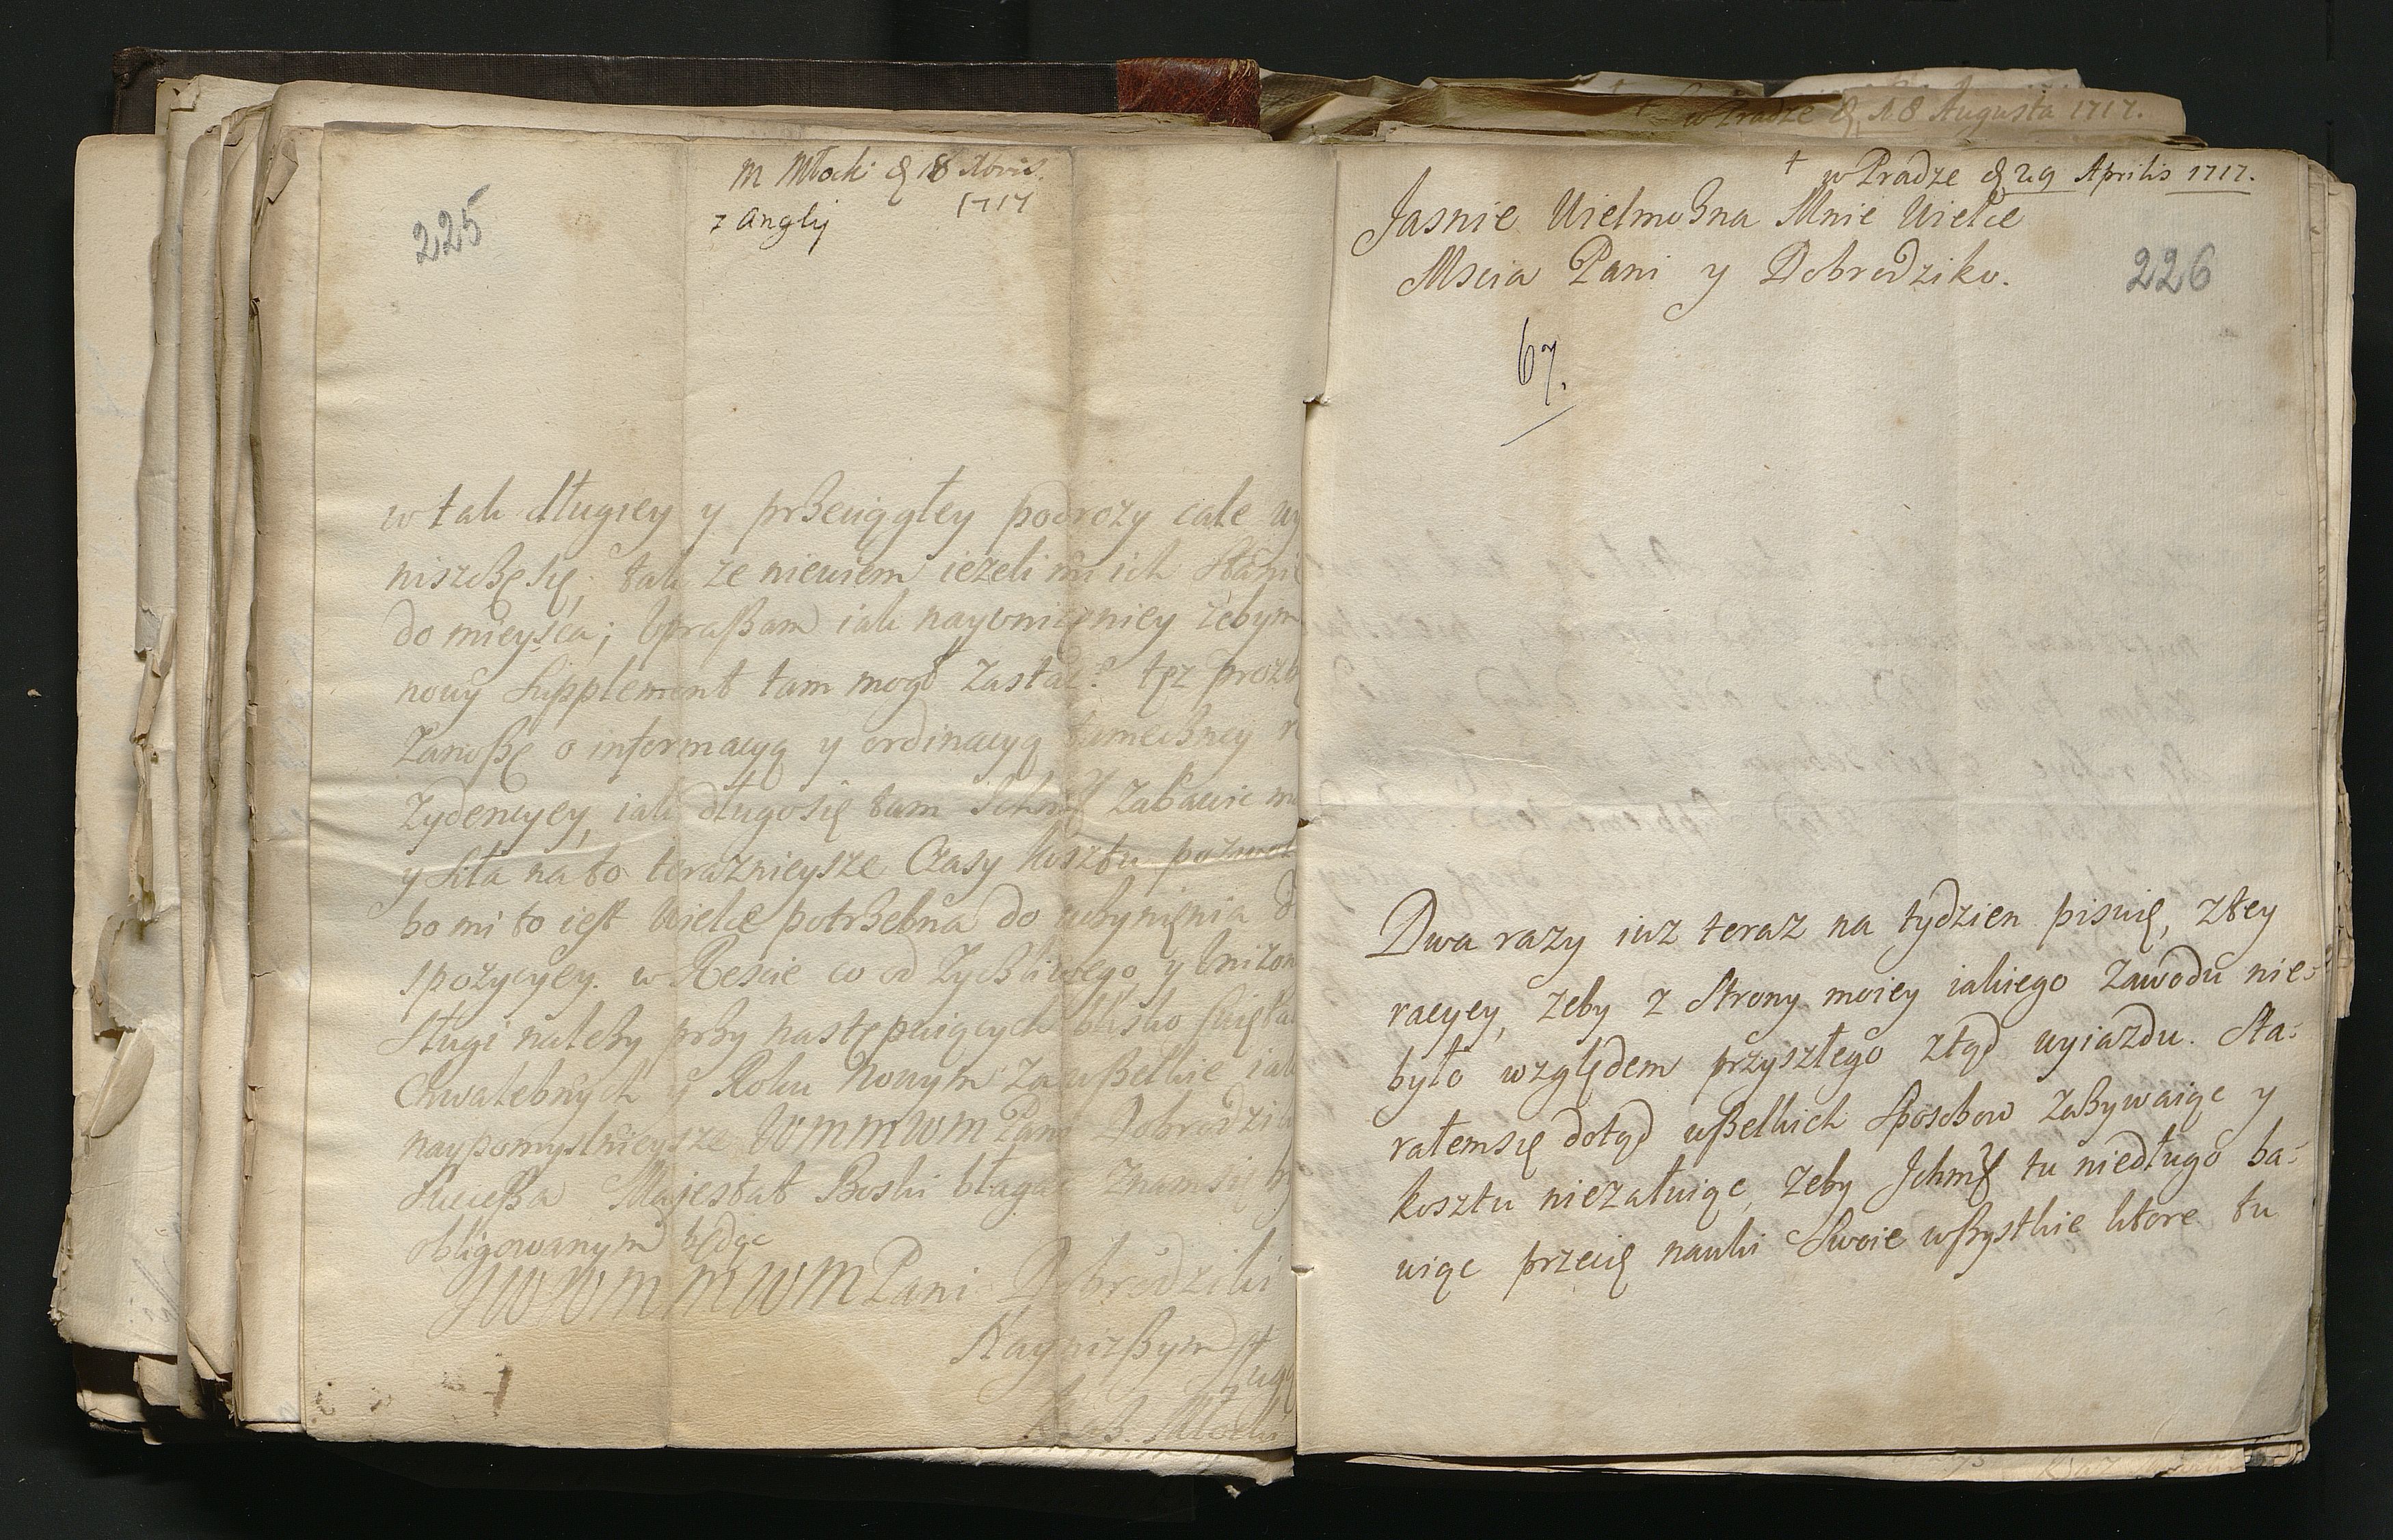 225
M Młocki d 18 Xbris
z Anglij 1717
w tak długiey y prszeciągłey podrozy cale wy
niszcżę się, tak ze niewiem iezeli mi ich stanie
do mieysca; Upraszam iak nayunizęniey zebym
nowy Supplement tam mogł zastać? tęz prozb
zanoszę o informacyą y ordinacyą tameczney r
zydencyey, iak długosię tam Ichmć zabawic m
y siła na to teraznieysze Czasy kosztu pozwol
bo mi to iest Wielce potrzebna do uczynięnia d
spozycyey. w Resćie co od zyczliwego y Unizon
Sługi nalezy przy następuiących blisko swięta
Chwalebnych y Roku Nowym za wszelkie iak
naypomyslnieysze WMMWM Pani Dobrodziki
Suciessa Majestat Boski błagac znamsię by
obligowanym będąc
JWWMMWM Pani Dobrodziki
Nayniszym sługą
Młocki
w Pradze d 18 Augusta 1717.
† w Pradze d 29 Aprilis 1717.
Jasnie Wielmożna Mnie Wielce
Mscia Pani y Dobrodziko.
226
67.
Dwa razy iuz teraz na tydzien piszię, z tey
racyey, zeby z strony moiey iakiego zawodu nie=
było względem przyszłego ztąd wyiazdu. Sta=
rałemsię dotąd wszelkich sposobow zazywaiąc y
kosztu niezałuiąc, zeby Ichmć tu niedługo ba=
wiąc przecię nauki Swoie wszystkie ktore tu